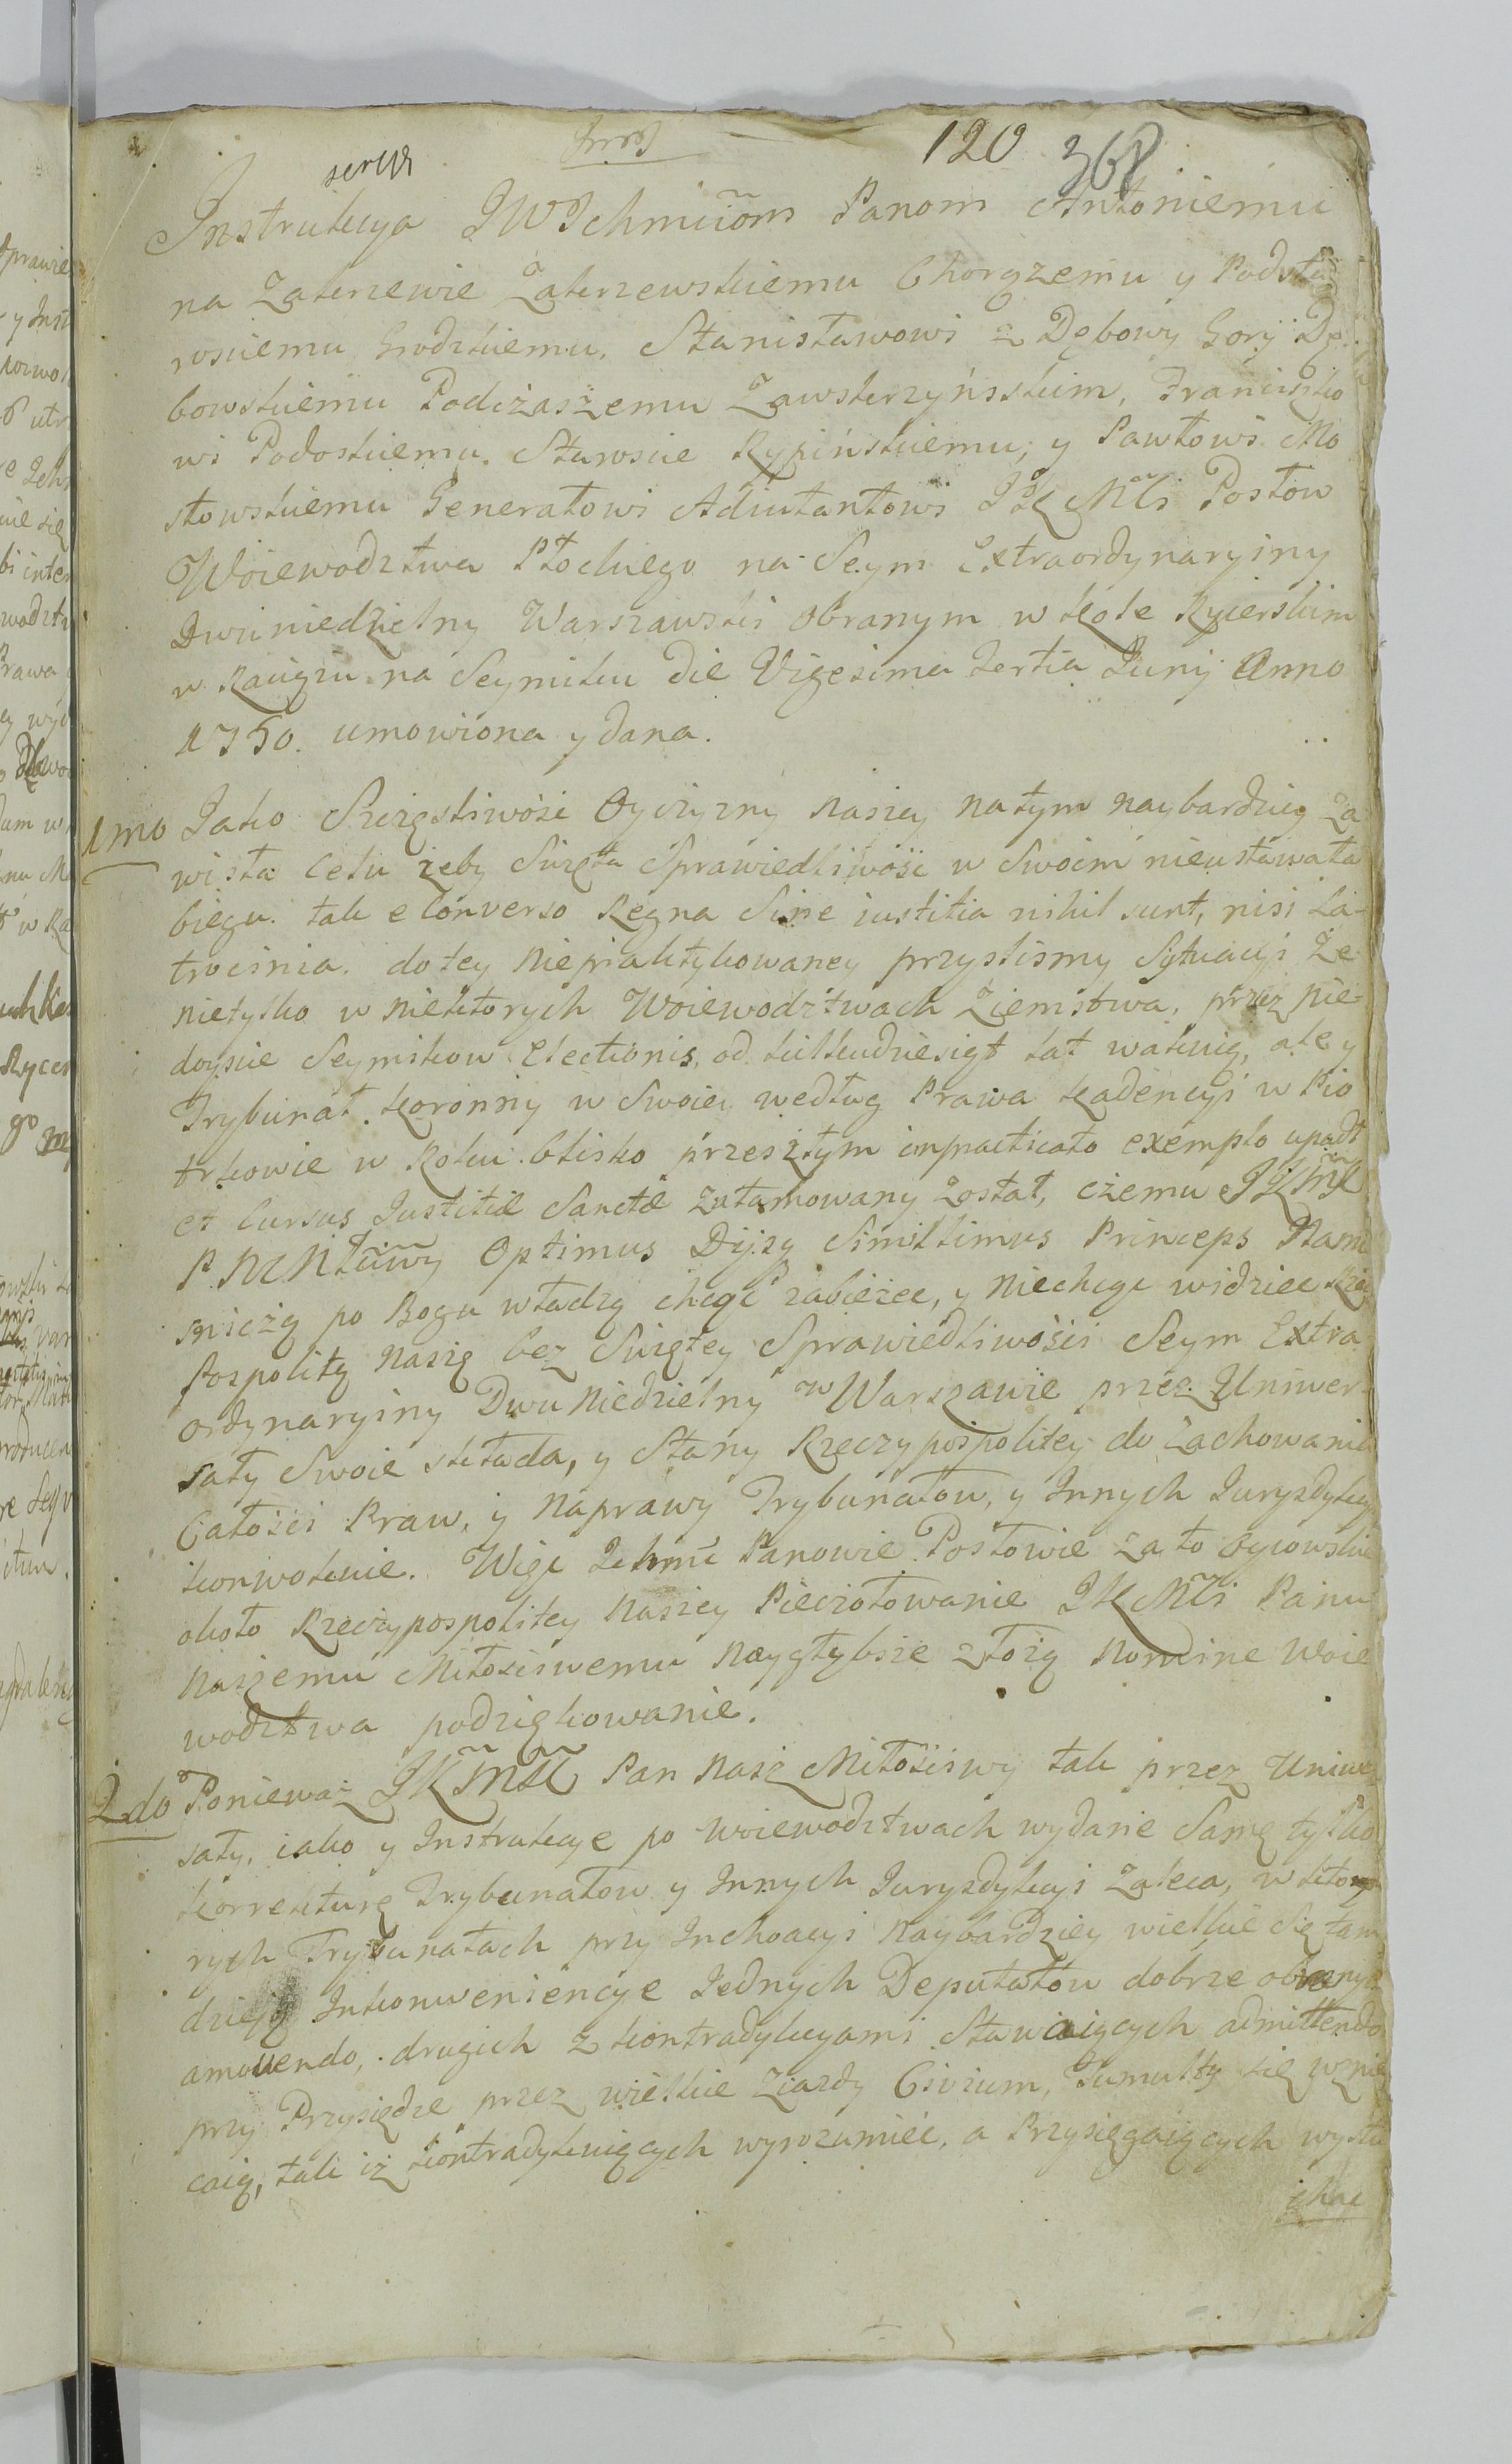 120 368
Instrukcya JWJchmciom Panom Antoniemu
na Zakrzewie Zakrzewskiemu Chorążemu y Podsta
rosciemu Grodzkiemu, Stanisławowi z Dębowy Gory Dę
bowskiemu Podczaszemu Zawskrzyńsskim, Franciszko
wi Podoskiemu Staroscie Rypińskiemu, y Pawłowi Mo
stowskiemu Generałowi Adiutantowi JKMCi Posłow
Woiewodztwa Płockiego na Seym Extraordynaryiny
Dwuniedzielny Warszawski Obranym w Kole Rycerskim
w Raiąziu na Seymiku die Vigesima tertia Junij Anno
1750. umowiona y dana.
1mo Jako Szczęśliwość Oyczyzny naszey natym naybardziey za
wisła Celu żeby Swięta Sprawiedliwość w Swoim nieustawała
biegu. tak e Converso Regna Sine iustitia nihil sunt, nisi La-
trocinia. dotey niepraktykowaney przyslismy Sytuacyi Ze
nietylko w niektorych Woiewodztwach Ziemstwa, przez nie
doyscie Seymikow Electionis, od kilkudziesiąt lat wakuią, ale y
Trybunał Koronny w Swoiey według Prawa Kadencyi w Pio
trkowie w Roku blisko przeszłym impracticato exemplo upadł
et Cursus Justitiæ Sanctæ zatamowany został, czemu JKMć
P. N Młciwy Optimus Dijsq Simillimus Princeps Nam
iesniczą po Bogu władzą chcąc zabieżec, y niechcąc widziec Rzeq
pospolitą naszą bez Swiętey Sprawiedliwości Seym Extra
ordynaryiny Dwuniedzielny w Warszawie przez Uniwer
sały Swoie składa, y Stany Rzeczypospolitey do zachowania
Całości Praw, y naprawy Trybunałow, y Innych Jurysdykcyi
konwokuie. Więc Ichmć Panowie Posłowie za to Oycowskie
około Rzeczypospolitey naszey Pieczołowanie JKMCi Panu
naszemu Miłosciwemu naygłybsze złożą nomine Woie
wodztwa podziękowanie.
2do Ponieważ JKMć Pan nasz Miłościwy tak przez Uniwer
sały, iako y Instrukcye po woiewodztwach wydane Samę tylko
korrekturę Trybunałow y Innych Jurysdykcyi zaleca, w kto
rych Trybunałach przy Inchoacyi naybardziey wielkie się tam
dzieią Inkonweniencye Jednych Deputatow dobrze obranych
amovendo, drugich z kontradykcyami Stawaiących admittendo
przy Przysiędze przez wielkie Ziazdy Civium, Tumulty się wznie
caią, tak iż kontradykuiących wyrozumieć, a Przysięgaiących wysłu
chac